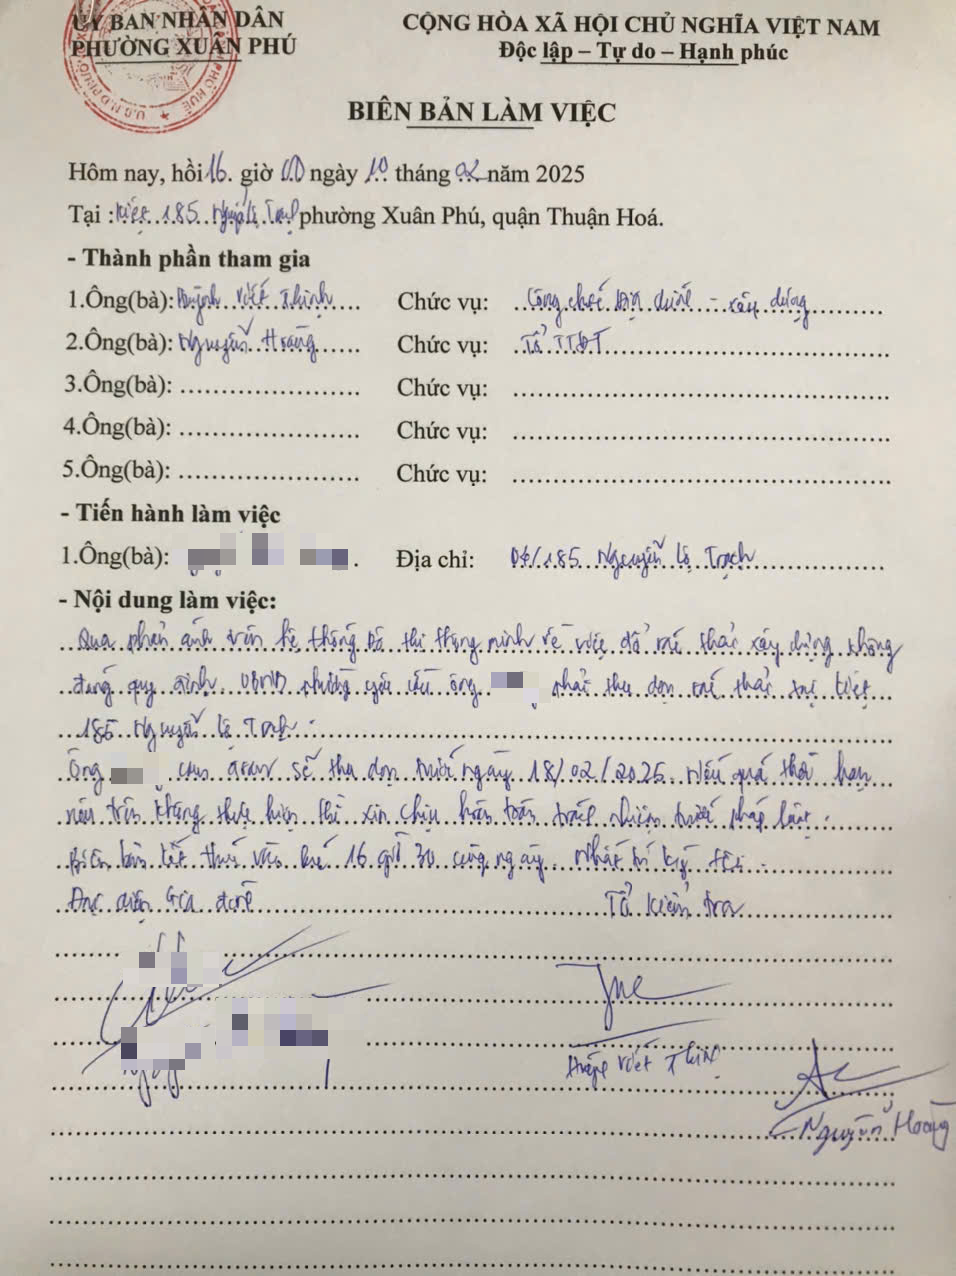 ỦY BAN NHÂN DÂN
PHƯỜNG XUÂN PHÚ
CỘNG HÒA XÃ HỘI CHỦ NGHĨA VIỆT NAM
Độc lập – Tự do – Hạnh phúc
BIÊN BẢN LÀM VIỆC
Hôm nay, hồi 16. giờ 00 ngày 10 tháng 02 năm 2025
Tại : kiệt 185 Nguyễn Lộ Trạch phường Xuân Phú, quận Thuận Hoá.
- Thành phần tham gia
1.Ông(bà): Huỳnh Viết Thịnh Chức vụ: Công chức địa chính - xây dựng
2.Ông(bà): Nguyễn Hoàng Chức vụ: Tổ TTĐT
3.Ông(bà): Chức vụ:
4.Ông(bà): Chức vụ:
5.Ông(bà): Chức vụ:
- Tiến hành làm việc
1.Ông(bà): Địa chỉ: 04/185 Nguyễn Lộ Trạch
- Nội dung làm việc:
Qua phản ánh trên hệ thống Đô thị thông minh về việc đổ rác thải xây dựng không
đúng quy định. UBND phường yêu cầu ông phải thu dọn rác thải tại kiệt
185 Nguyễn Lộ Trạch.
Ông cam đoan sẽ thu dọn trước ngày 18/02/2025. Nếu quá thời hạn
nêu trên không thực hiện thì xin chịu hoàn toàn trách nhiệm trước pháp luật.
Biên bản kết thúc vào lúc 16 giờ 30 cùng ngày. Nhất trí ký tên.
Đại diện Gia đình Tổ kiểm tra
Huỳnh Viết Thịnh
Nguyễn Hoàng